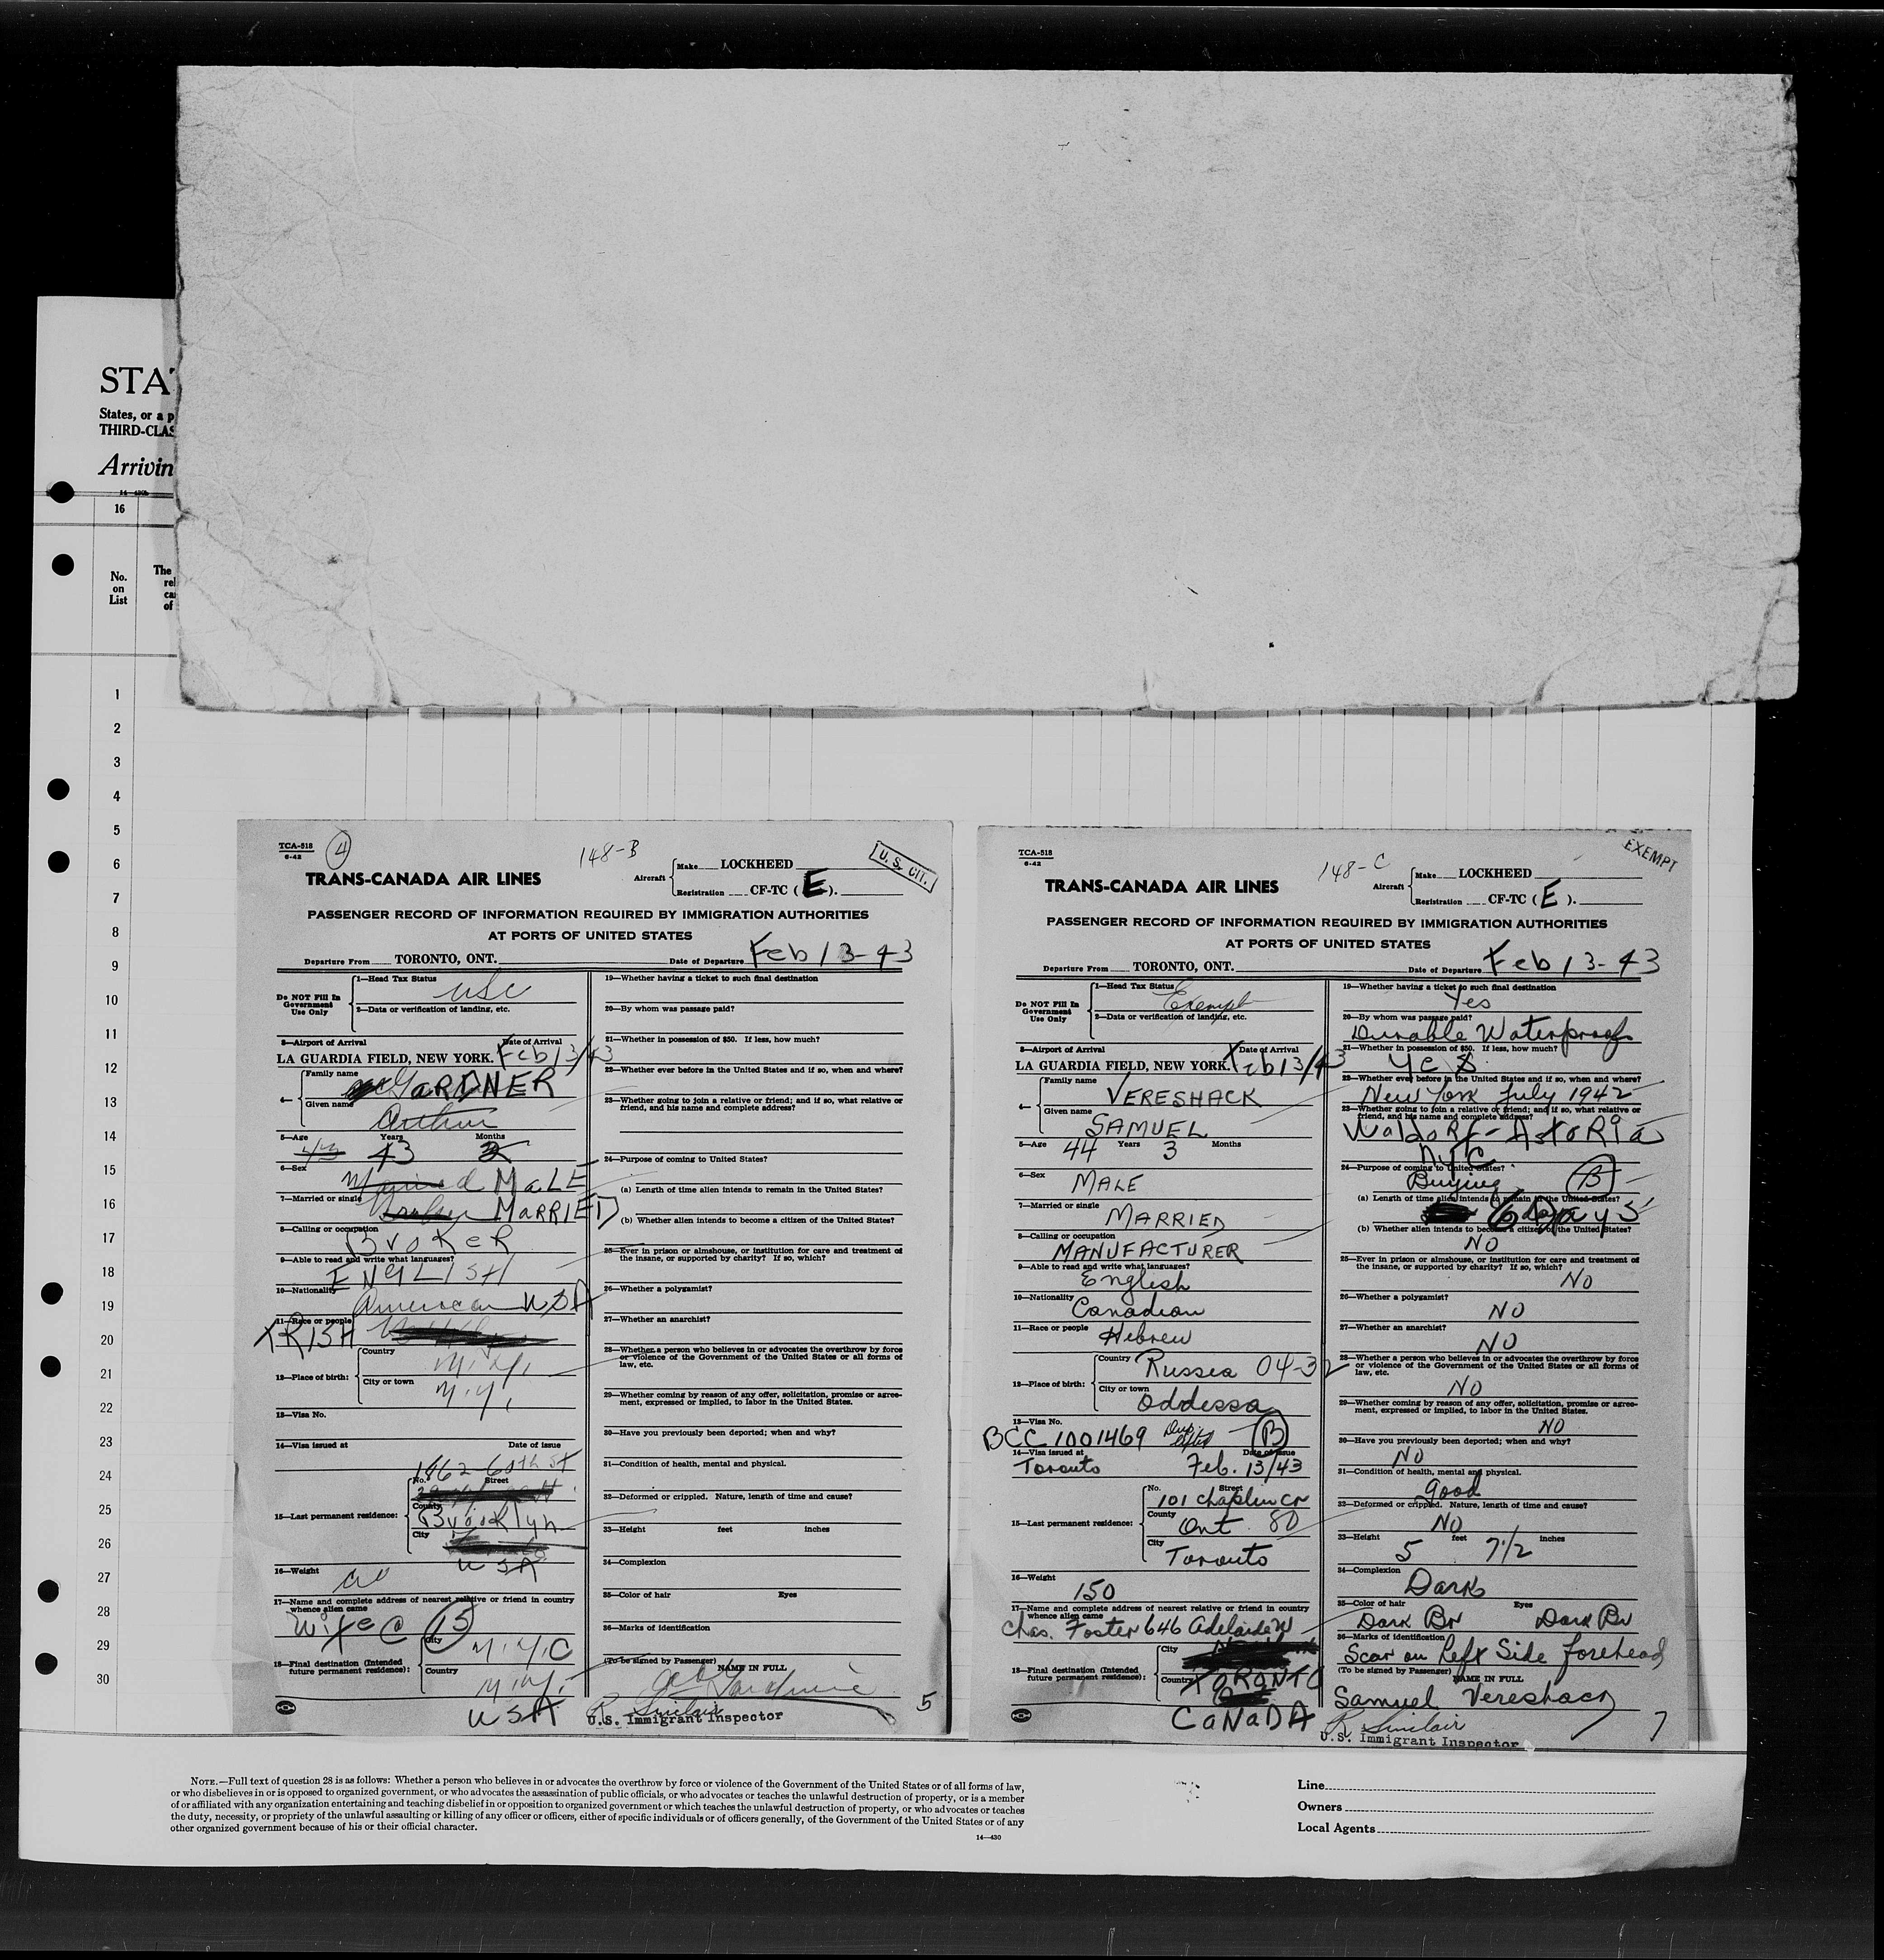 STA
States, or a p
THIRD-CLAS
Arrivin
16
No.
on
List
The
rel
ca
of
1
2
3
4
5
6
7
8
9
10
11
12
13
14
15
16
17
18
19
20
21
22
23
24
25
26
27
28
29
30
TCA-518
6-42
4
148-B
TRANS-CANADA AIR LINES
Aircraft
Make LOCKHEED
Registration CF-TC ( E ).
U. S. CIT.
PASSENGER RECORD OF INFORMATION REQUIRED BY IMMIGRATION AUTHORITIES
AT PORTS OF UNITED STATES
Departure From TORONTO, ONT. Date of Departure Feb 13-43
Do NOT Fill In
Government
Use Only
1—Head Tax Status
USC
2—Data or verification of landing, etc.
3—Airport of Arrival Date of Arrival
LA GUARDIA FIELD, NEW YORK. Feb 13/43
4—
Family name
GARDNER
Given name
Arthur
5—Age Years Months
43 43 2
6—Sex
MALE
7—Married or single
MARRIED
8—Calling or occupation
BROKER
9—Able to read and write what languages?
ENGLISH
10—Nationality
American USA
11—Race or people
IRISH
12—Place of birth:
Country
N.Y.
City or town
N.Y.
13—Visa No.
14—Visa issued at Date of issue
15—Last permanent residence:
1862-60th St
No. Street
County
Brooklyn
City
USA
16—Weight
17—Name and complete address of nearest relative or friend in country
whence alien came
Wife C 15
18—Final destination (Intended
future permanent residence):
City
N.Y.C
Country
N.Y.
USA
19—Whether having a ticket to such final destination
20—By whom was passage paid?
21—Whether in possession of $50. If less, how much?
22—Whether ever before in the United States and if so, when and where?
23—Whether going to join a relative or friend; and if so, what relative or
friend, and his name and complete address?
24—Purpose of coming to United States?
(a) Length of time alien intends to remain in the United States?
(b) Whether alien intends to become a citizen of the United States?
25—Ever in prison or almshouse, or institution for care and treatment of
the insane, or supported by charity? If so, which?
26—Whether a polygamist?
27—Whether an anarchist?
28—Whether a person who believes in or advocates the overthrow by force
or violence of the Government of the United States or all forms of
law, etc.
29—Whether coming by reason of any offer, solicitation, promise or agree-
ment, expressed or implied, to labor in the United States.
30—Have you previously been deported; when and why?
31—Condition of health, mental and physical.
32—Deformed or crippled. Nature, length of time and cause?
33—Height feet inches
34—Complexion
35—Color of hair Eyes
36—Marks of identification
(To be signed by Passenger) NAME IN FULL
R Sinclair
U.S. Immigrant Inspector
5
TCA-518
6-42
148-C
TRANS-CANADA AIR LINES
Aircraft
Make LOCKHEED
Registration CF-TC ( E ).
EXEMPT
PASSENGER RECORD OF INFORMATION REQUIRED BY IMMIGRATION AUTHORITIES
AT PORTS OF UNITED STATES
Departure From TORONTO, ONT. Date of Departure Feb 13-43
Do NOT Fill In
Government
Use Only
1—Head Tax Status
Exempt
2—Data or verification of landing, etc.
3—Airport of Arrival Date of Arrival
LA GUARDIA FIELD, NEW YORK. Feb 13/43
4—
Family name
VERESHACK
Given name
SAMUEL
5—Age Years Months
44 3
6—Sex
MALE
7—Married or single
MARRIED
8—Calling or occupation
MANUFACTURER
9—Able to read and write what languages?
English
10—Nationality
Canadian
11—Race or people
Hebrew
12—Place of birth:
Country
Russia 04-32
City or town
Oddessa
13—Visa No.
BCC 1001469 B
14—Visa issued at Date of issue
Toronto Feb. 13/43
15—Last permanent residence:
No. Street
101 Chaplin Cr
County
Ont. 80
City
Toronto
16—Weight
150
17—Name and complete address of nearest relative or friend in country
whence alien came
Chas. Foster 646 Adelaide W
18—Final destination (Intended
future permanent residence):
City
Country
TORONTO
CANADA
19—Whether having a ticket to such final destination
Yes
20—By whom was passage paid?
Durable Waterproof
21—Whether in possession of $50. If less, how much?
Yes
22—Whether ever before in the United States and if so, when and where?
New York July 1942
23—Whether going to join a relative or friend; and if so, what relative or
friend, and his name and complete address?
Waldorf-Astoria
NYC
24—Purpose of coming to United States?
Buying B
(a) Length of time alien intends to remain in the United States?
6 days
(b) Whether alien intends to become a citizen of the United States?
NO
25—Ever in prison or almshouse, or institution for care and treatment of
the insane, or supported by charity? If so, which?
NO
26—Whether a polygamist?
NO
27—Whether an anarchist?
NO
28—Whether a person who believes in or advocates the overthrow by force
or violence of the Government of the United States or all forms of
law, etc.
NO
29—Whether coming by reason of any offer, solicitation, promise or agree-
ment, expressed or implied, to labor in the United States.
NO
30—Have you previously been deported; when and why?
NO
31—Condition of health, mental and physical.
Good
32—Deformed or crippled. Nature, length of time and cause?
NO
33—Height feet inches
5 7 1/2
34—Complexion
Dark
35—Color of hair Eyes
Dark Br Dark Br
36—Marks of identification
Scar on Left Side forehead
(To be signed by Passenger) NAME IN FULL
Samuel Vereshack
R Sinclair
U.S. Immigrant Inspector
7
NOTE.—Full text of question 28 is as follows: Whether a person who believes in or advocates the overthrow by force or violence of the Government of the United States or of all forms of law,
or who disbelieves in or is opposed to organized government, or who advocates the assassination of public officials, or who advocates or teaches the unlawful destruction of property, or is a member
of or affiliated with any organization entertaining and teaching disbelief in or opposition to organized government or which teaches the unlawful destruction of property, or who advocates or teaches
the duty, necessity, or propriety of the unlawful assaulting or killing of any officer or officers, either of specific individuals or of officers generally, of the Government of the United States or of any
other organized government because of his or their official character.
14—430
Line
Owners
Local Agents